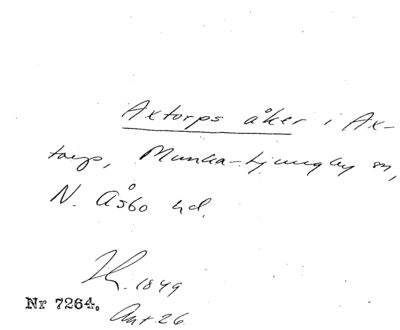 Axtorps åker i Ax-
torp, Munka-Ljungby sn,
N. Åsbo hd.
1849
Nr 7264.
Ant. 26